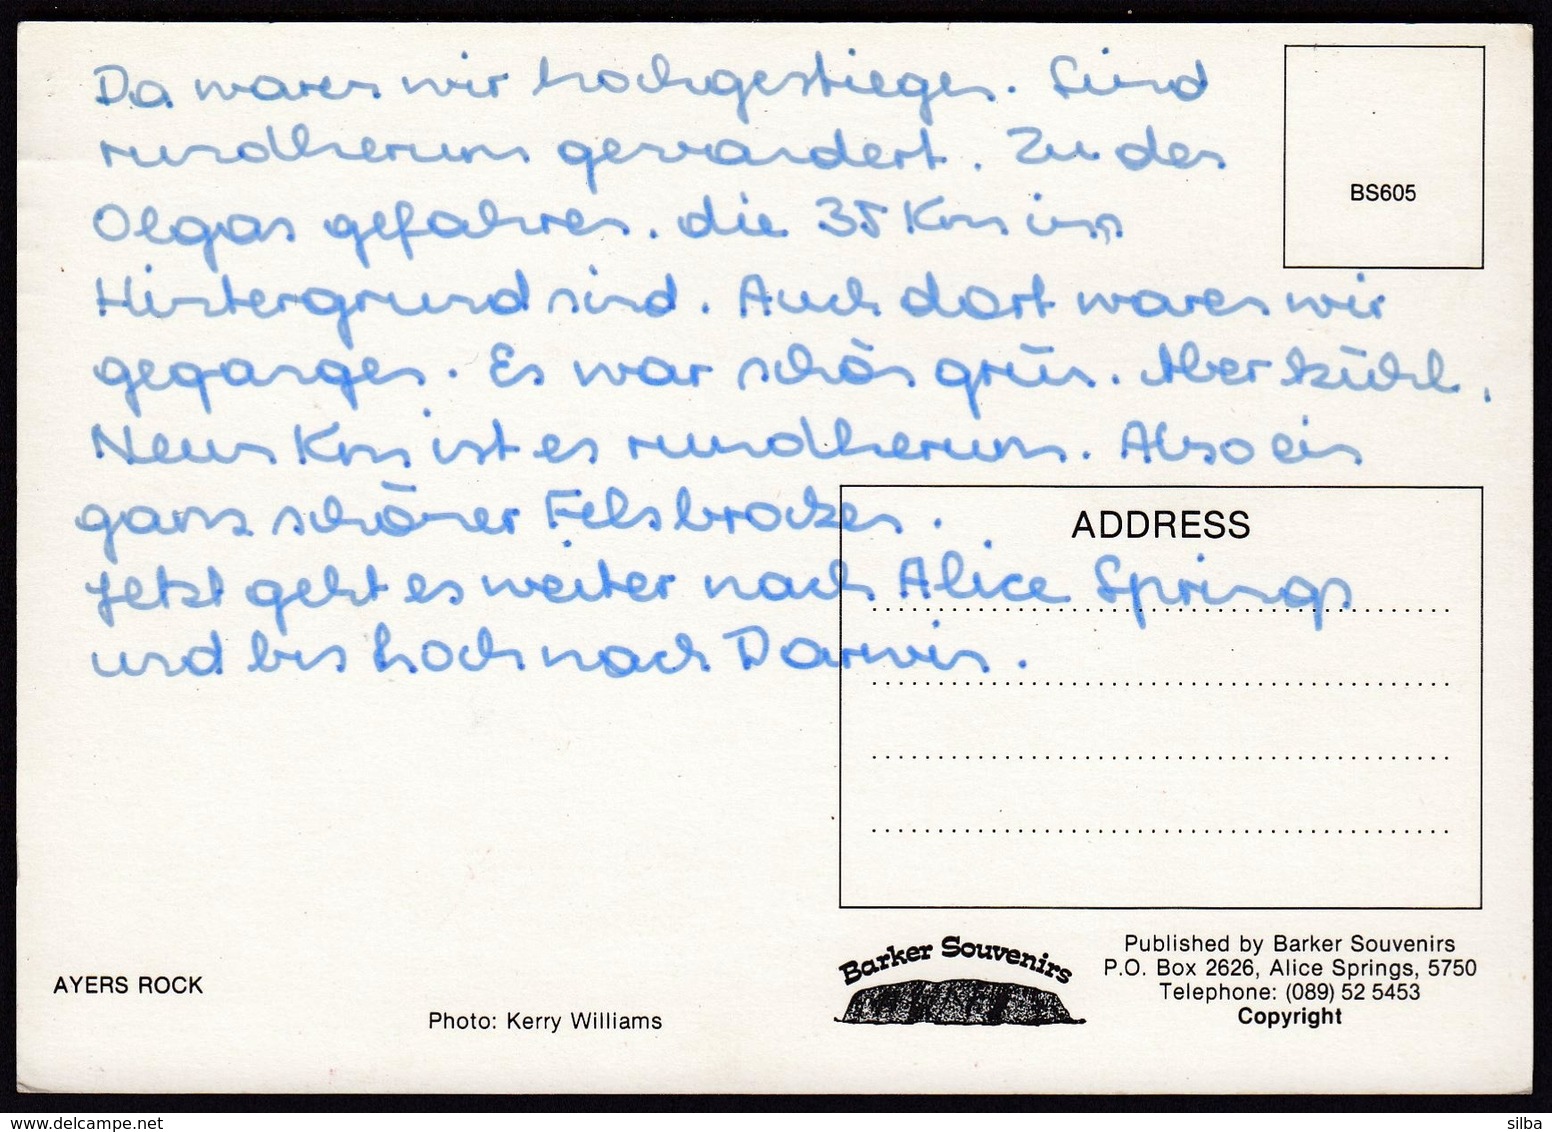 Da waren wir hochgestiegen. Sind
rundherum gewandert. Zu den
Olgas gefahren. die 35 Km im
Hintergrund sind. Auch dort waren wir
gegangen. Es war schön grün. Aber kühl.
Neun Km ist es rundherum. Also ein
ganz schöner Felsbrocken.
Jetzt geht es weiter nach Alice Springs
und bis hoch nach Darwin.
BS605
ADDRESS
AYERS ROCK
Photo: Kerry Williams
Barker Souvenirs
Published by Barker Souvenirs
P.O. Box 2626, Alice Springs, 5750
Telephone: (089) 52 5453
Copyright
www.delcampe.net
silba